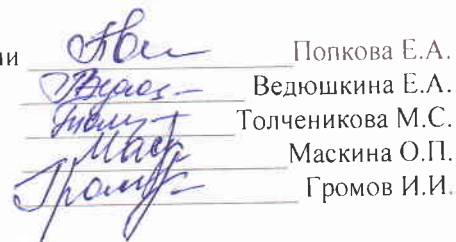 ии Попкова Е.А.
Ведюшкина Е.А.
Толченикова М.С.
Маскина О.П.
Громов И.И.